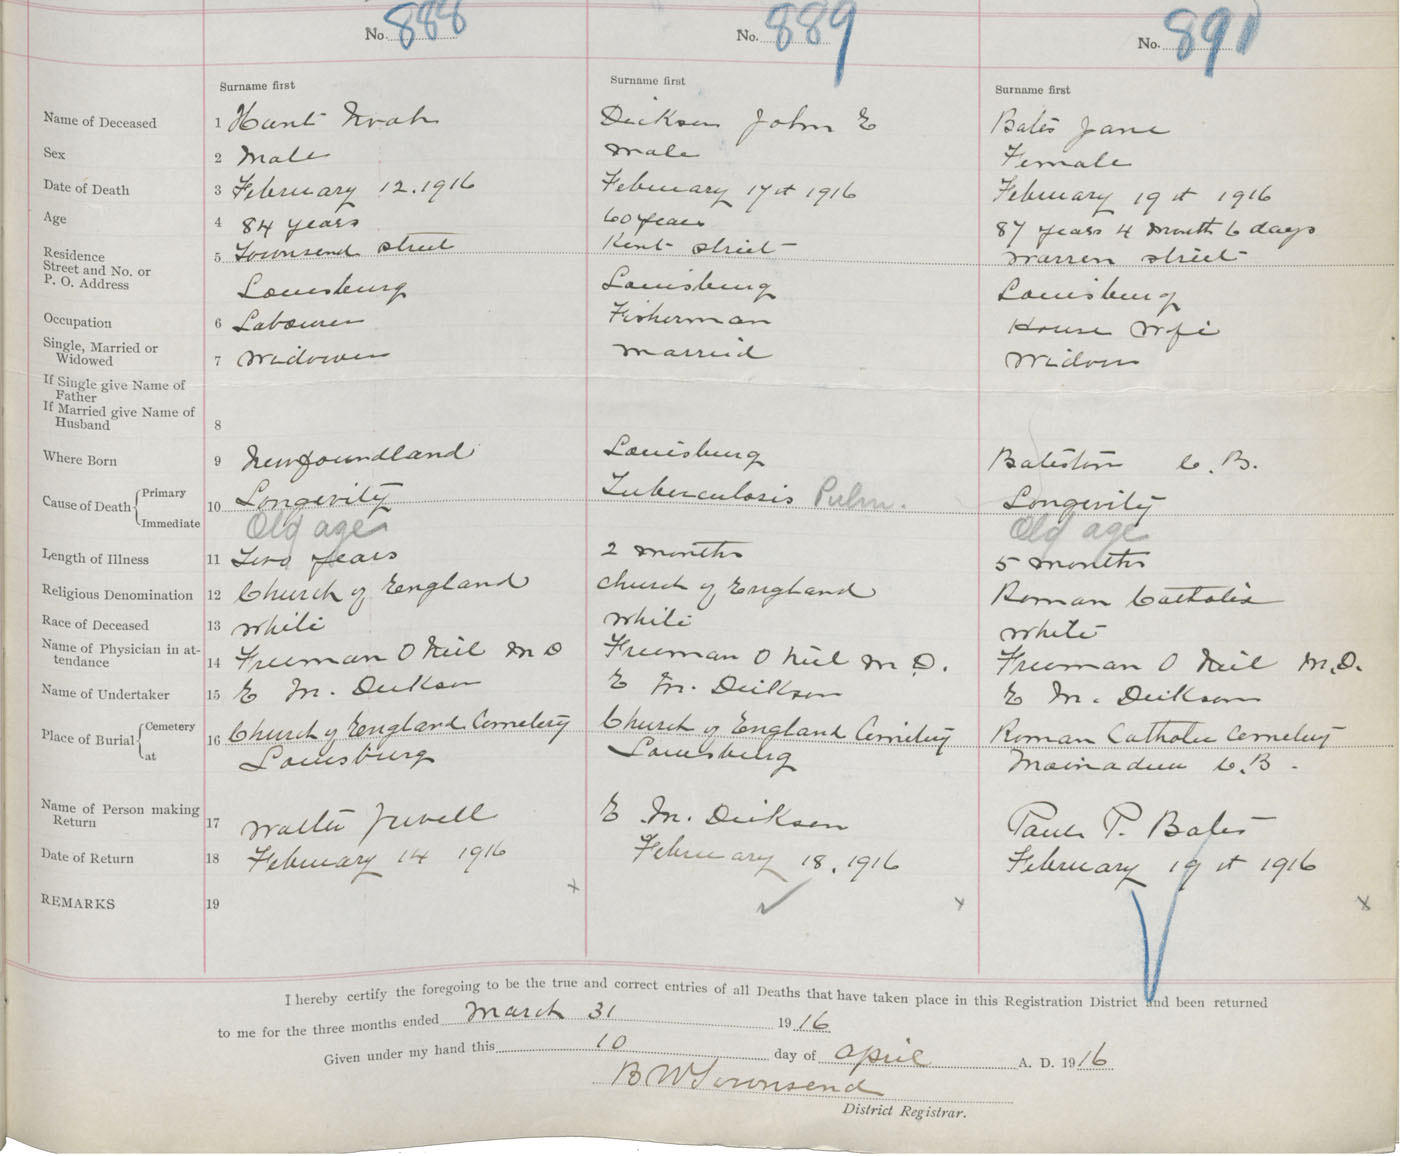 No. 888 No. 889 No. 891
Surname first Surname first Surname first
Name of Deceased 1 Hunt Noah Dickson John E Bates Jane
Sex 2 Male Male Female
Date of Death 3 February 12. 1916 February 17st 1916 February 19st 1916
Age 4 84 years 60 years 87 years 4 month 6 days
Residence Street and No. or P. O. Address 5 Townsend street Kent street Warren street
Louisburg Louisburg Louisburg
Occupation 6 Labourer Fisherman House Wife
Single, Married or Widowed 7 Widower Married Widow
If Single give Name of Father
If Married give Name of Husband 8
Where Born 9 Newfoundland Louisburg Bateston C. B.
Cause of Death { Primary Immediate 10 Longevity Tuberculosis Pulm. Longevity
Old age Old age
Length of Illness 11 Two years 2 months 5 months
Religious Denomination 12 Church of England Church of England Roman Catholic
Race of Deceased 13 White White White
Name of Physician in attendance 14 Freeman O Neil M D Freeman O Neil M. D. Freeman O Neil M. D.
Name of Undertaker 15 E M. Dickson E M. Dickson E M. Dickson
Place of Burial { Cemetery at 16 Church of England Cemetery Church of England Cemetery Roman Catholic Cemetery
Louisburg Louisburg Mainadieu C. B.
Name of Person making Return 17 Walter Jewell E M. Dickson Paul P. Bates
Date of Return 18 February 14 1916 February 18, 1916 February 19st 1916
REMARKS 19
I hereby certify the foregoing to be the true and correct entries of all Deaths that have taken place in this Registration District and been returned
to me for the three months ended March 31 1916
Given under my hand this 10 day of April A. D. 1916
B W Townsend
District Registrar.